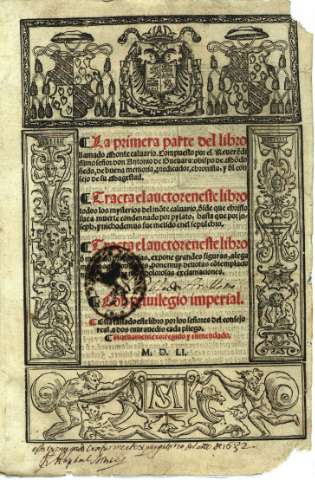 La primera parte del libro
llamado Monte caluario. Compuesto por el Reuerendi
simo señor don Antonio de Gueuara obispo de Mõdo
ñedo, de buena memoria, predicador, chronista, y del con
sejo de su Magestad.
Tracta el auctor en este libro
todos los mysterios del mõte caluario, desde que christo
fue a muerte condennado por pylato, hasta que por jo
seph, y nichodemus fue metido en el sepulchro.
Tracta el auctor en este libro
expone grandes figuras, alega
deuotas cõtemplaciones
exclamaciones.
Con priuilegio imperial.
Esta tassado este libro por los señores del consejo
real a dos mrs y medio cada pliego.
Nueuamente corregido y emendado.
M. D. LI.
MS
de 1632